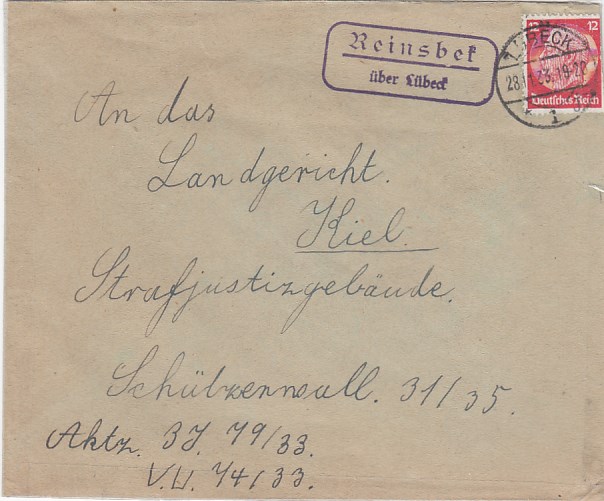 Reinsbek
über Lübeck
12 12
LÜBECK
28.11.33.19-20
Deutsches Reich
1
An das
Landgericht.
Kiel.
Strafjustizgebäude.
Schützenwall. 31/35.
Aktz. 3J. 79/33.
V.U. 74/33.